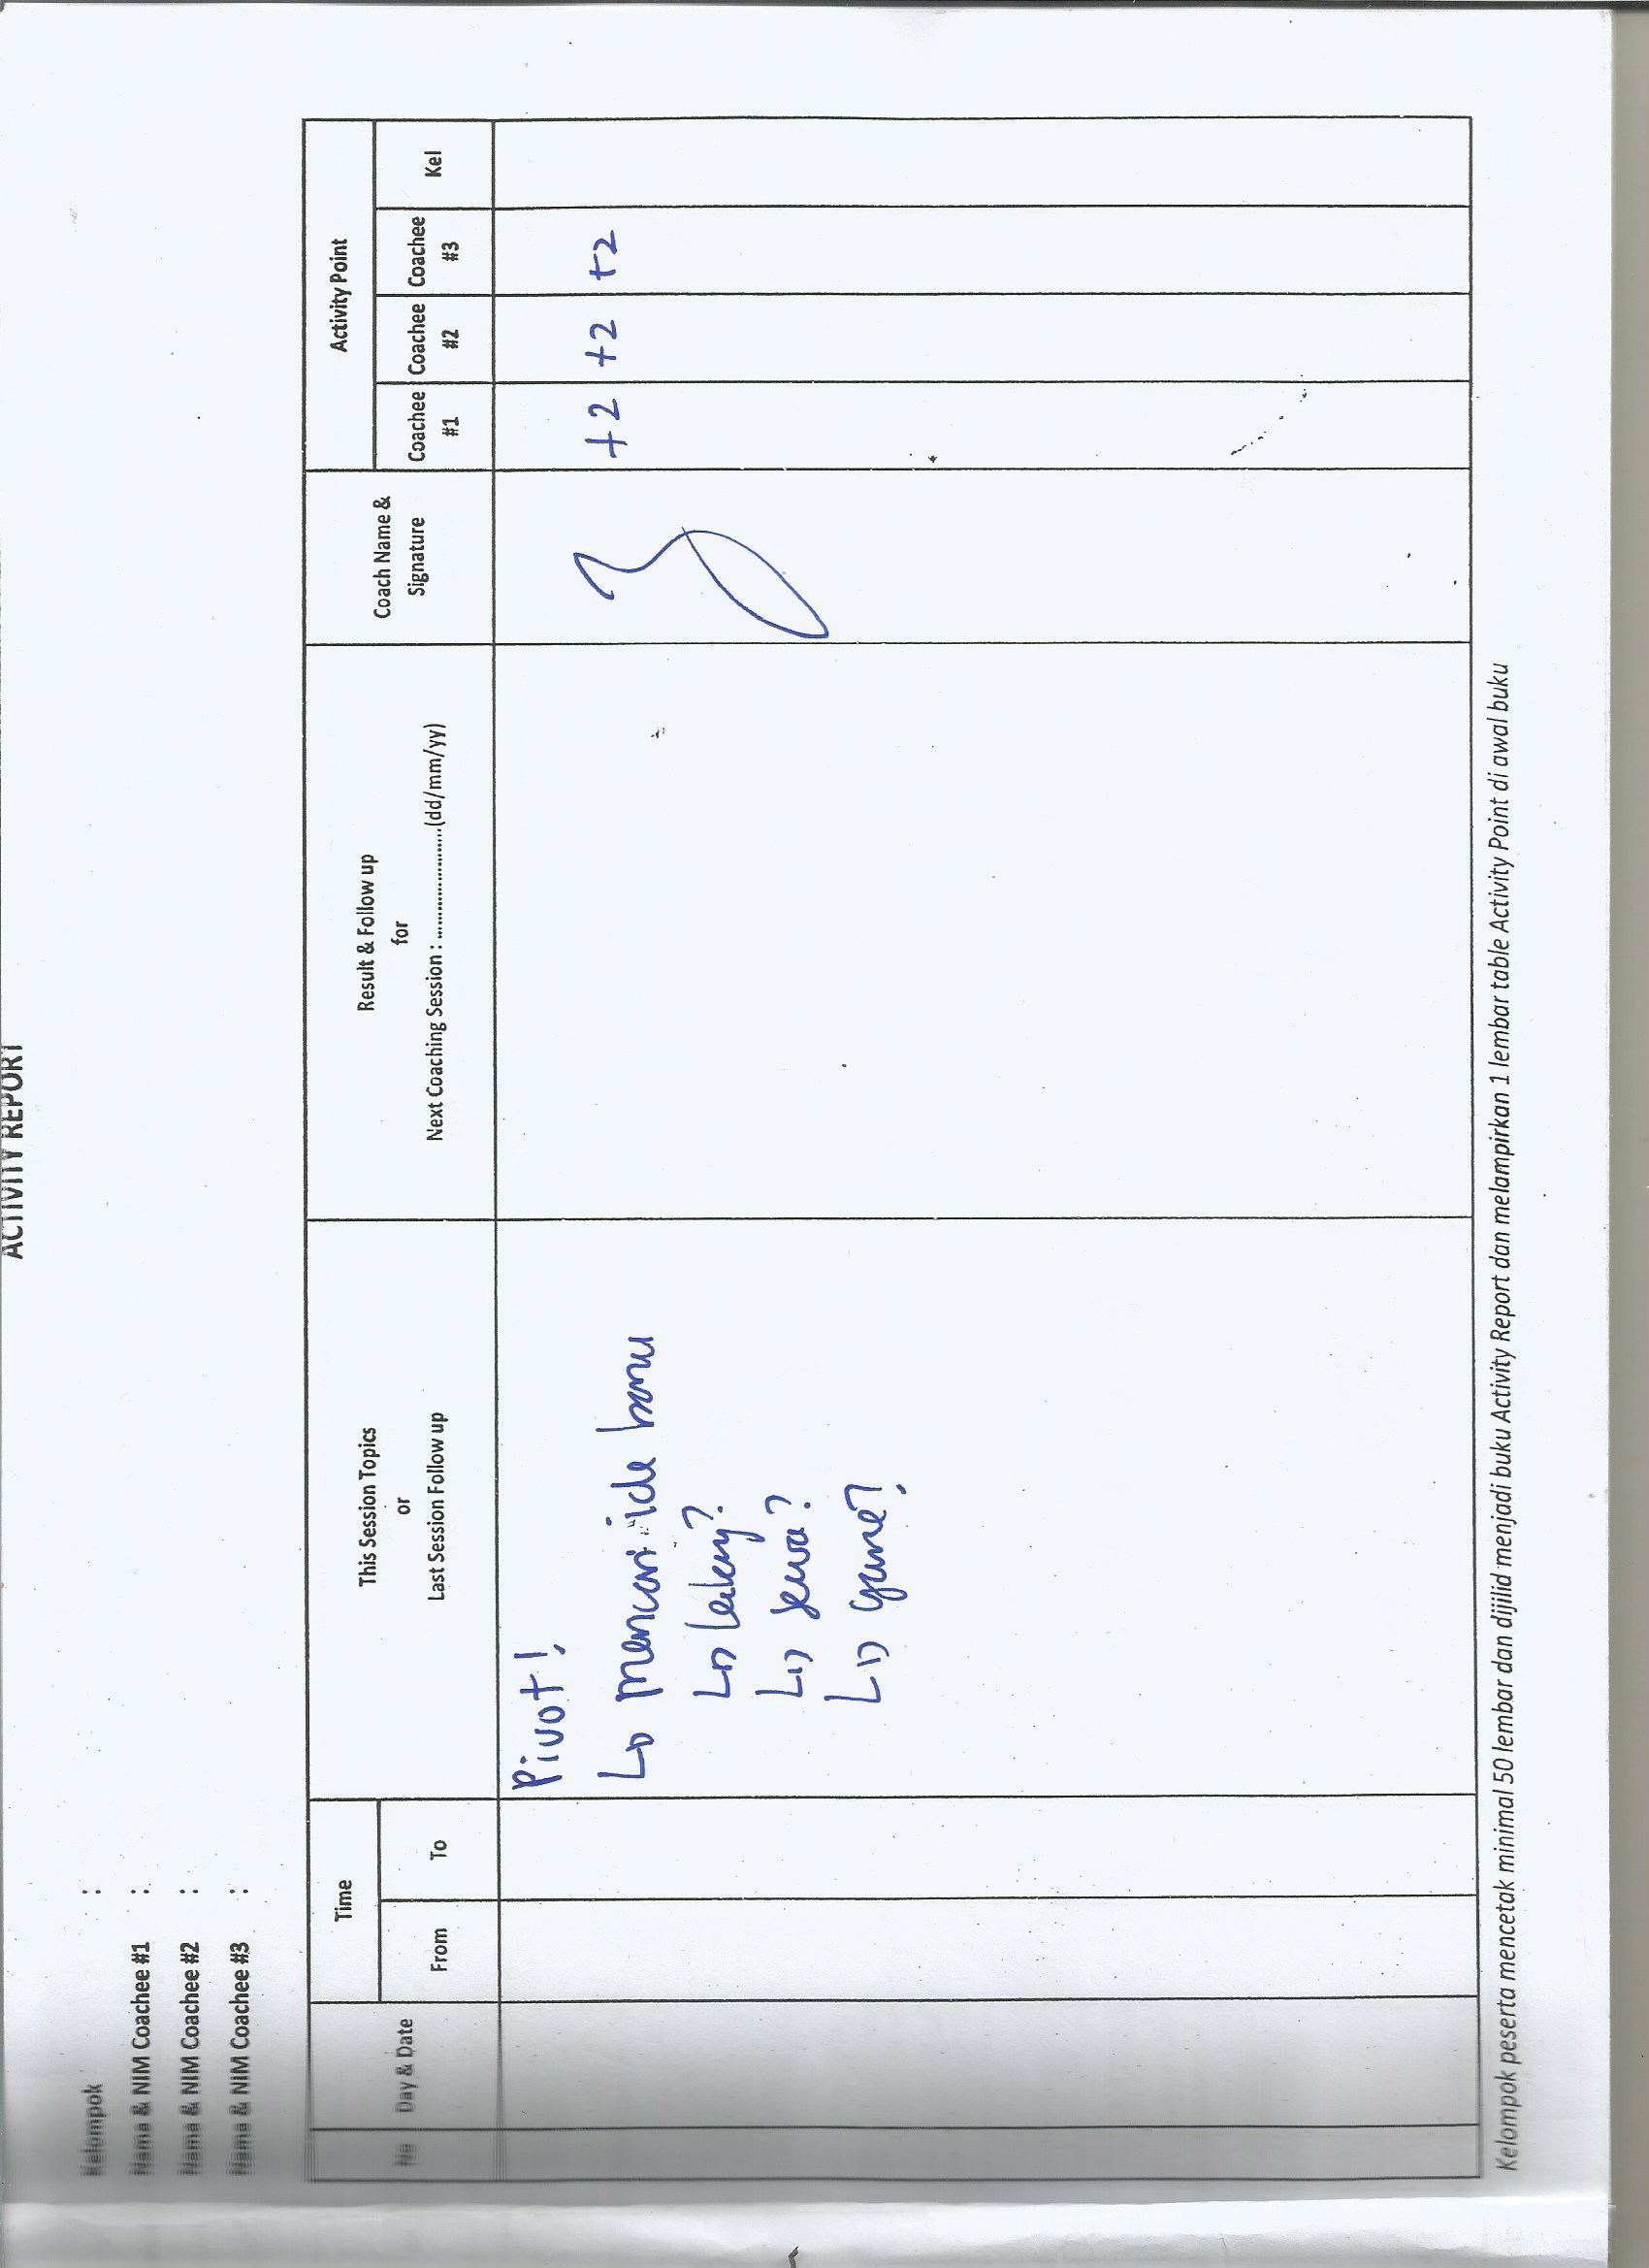 ACTIVITY REPORT
Kelompok :
Nama & NIM Coachee #1 :
Nama & NIM Coachee #2 :
Nama & NIM Coachee #3 :
No
Day & Date
Time
From
To
This Session Topics
or
Last Session Follow up
Result & Follow up
for
Next Coaching Session : ......................(dd/mm/yy)
Coach Name &
Signature
Activity Point
Coachee
#1
Coachee
#2
Coachee
#3
Kel
Pivot!
mencari ide baru
lelang?
sewa?
game?
+2 +2 +2
Kelompok peserta mencetak minimal 50 lembar dan dijilid menjadi buku Activity Report dan melampirkan 1 lembar table Activity Point di awal buku